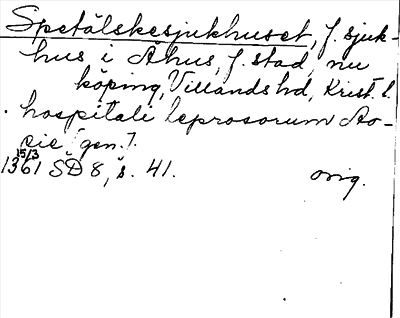 Spetälskesjukhuset, f. sjuk-
hus i Åhus, f. stad, nu
köping, Villands hd, Krist. l.
. hospitali leprosorum Ao-
sie (gen.).
15/3
1361 SD 8, s. 41. orig.